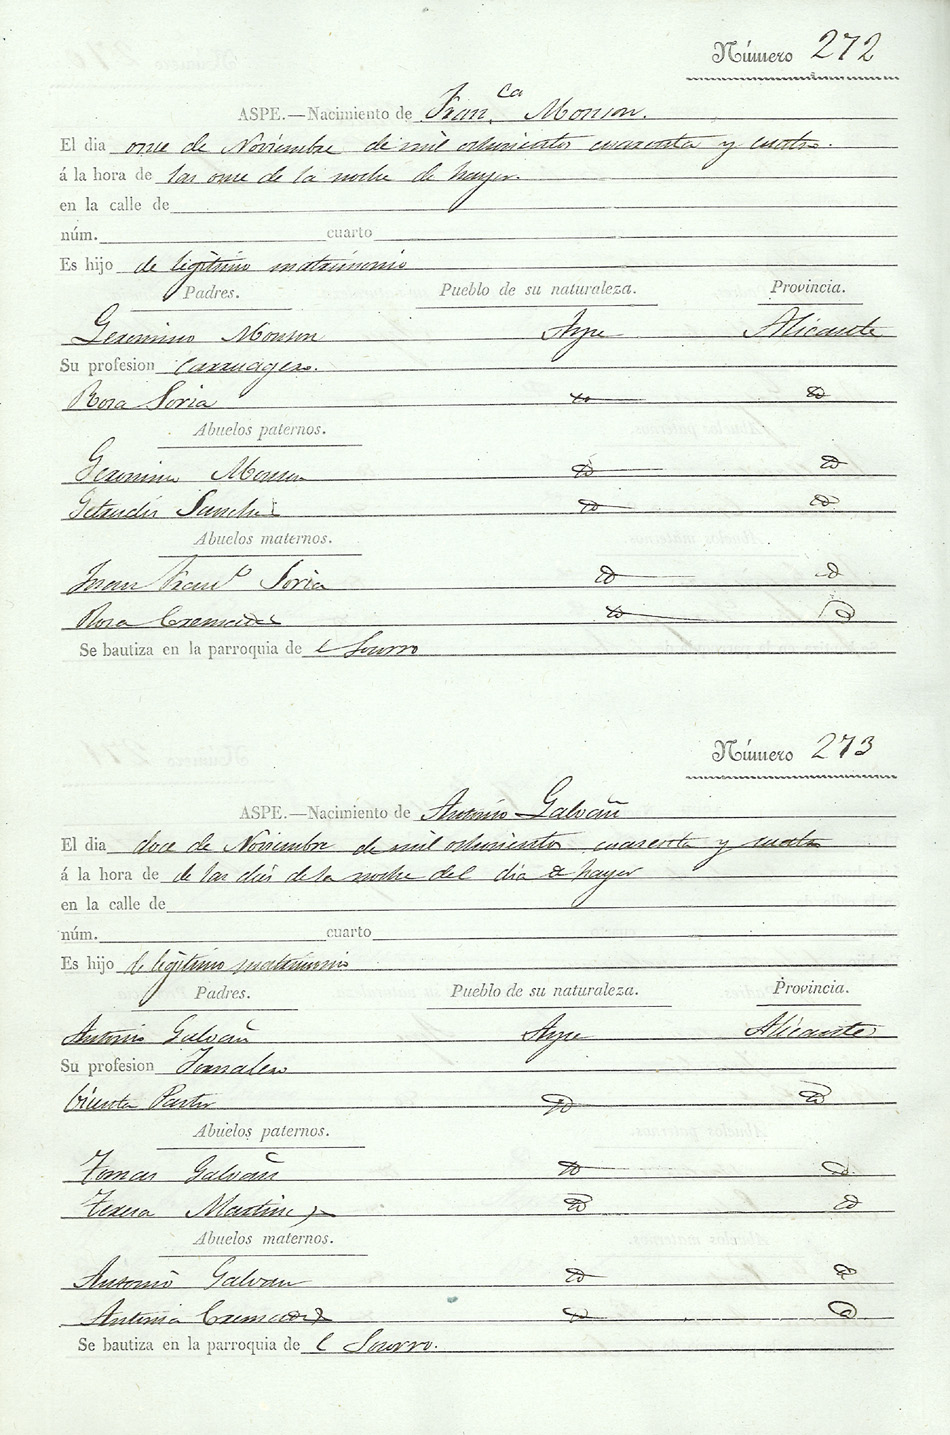 Número 272
ASPE.—Nacimiento de Fran.ca Monson.
El dia once de Noviembre de mil ochocientos cuarenta y cuatro.
á la hora de las once de la noche de hayer.
en la calle de
núm. cuarto
Es hijo de legitimo matrimonio
Padres. Pueblo de su naturaleza. Provincia.
Geronimo Monson Aspe Alicante
Su profesion Carruagero.
Rosa Soria id id
Abuelos paternos.
Geronimo Monson id id
Getrudis Sanchez id id
Abuelos maternos.
Juan Fran.co Soria id id
Rosa Cremades id id
Se bautiza en la parroquia de l Socorro
Número 273
ASPE.—Nacimiento de Antonio Galvañ
El dia doce de Noviembre de mil ochocientos cuarenta y cuatro
á la hora de de las dies de la noche del dia de hayer
en la calle de
núm. cuarto
Es hijo de legitimo matrimonio
Padres. Pueblo de su naturaleza. Provincia.
Antonio Galvañ Aspe Alicante
Su profesion Jornalero
Vicenta Pastor id id
Abuelos paternos.
Tomas Galvañ id id
Teresa Martinez id id
Abuelos maternos.
Antonio Galvan id id
Antonia Cremades id id
Se bautiza en la parroquia de l Socorro.